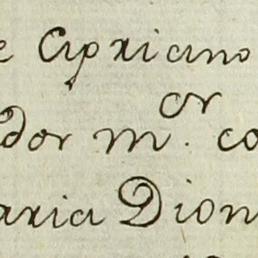 e Cipriano
dor m<sup>or</sup>. co
aria Dion